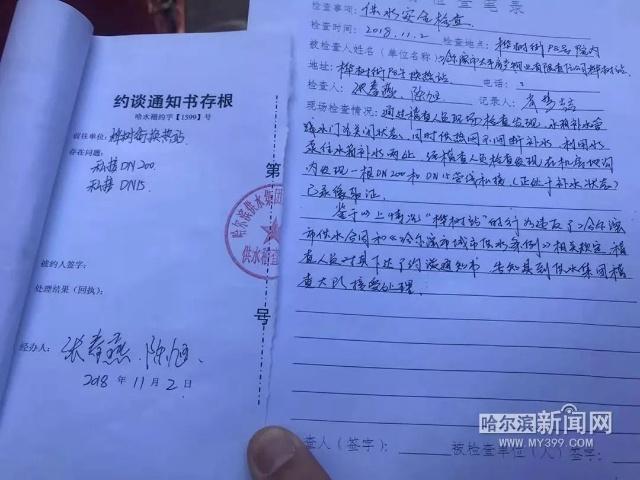 约谈通知书存根
哈水稽约字【1599】号
被约单位：桦树街换热站
存在问题：
私接DN200
私接DN15
被约人签字：
处理结果（回执）：
经办人：张春燕 陈旭
2018 年 11 月 2 日
第
号
哈尔滨供水集团
供水稽查
检查笔录
检查事项：供水安全检查
检查时间：2018.11.2 检查地点：桦树街PE号院内
被检查人姓名（单位名称）
地址：桦树街 换热站 电话：
检查人：张春燕 陈旭 记录人：
现场检查情况：通过稽查人员现场检查发现，水箱补水管
线水门为关闭状态，同时供热网不间断补水，利用水
泵往水箱补水 经稽查人员检查发现，在机房地沟
内发现一根DN200和DN15管线私接（正处于补水状态）
已录像取证。
鉴于以上情况“桦树站”的行为违反了《哈尔滨
市供水合同》和《哈尔滨市城市供水条例》相关规定，稽
查人员对其下达了约谈通知书，告知其到供水集团稽
查大队接受处理。
查人（签字）： 被检查单位（人）签字：
哈尔滨新闻网
WWW.MY399.COM